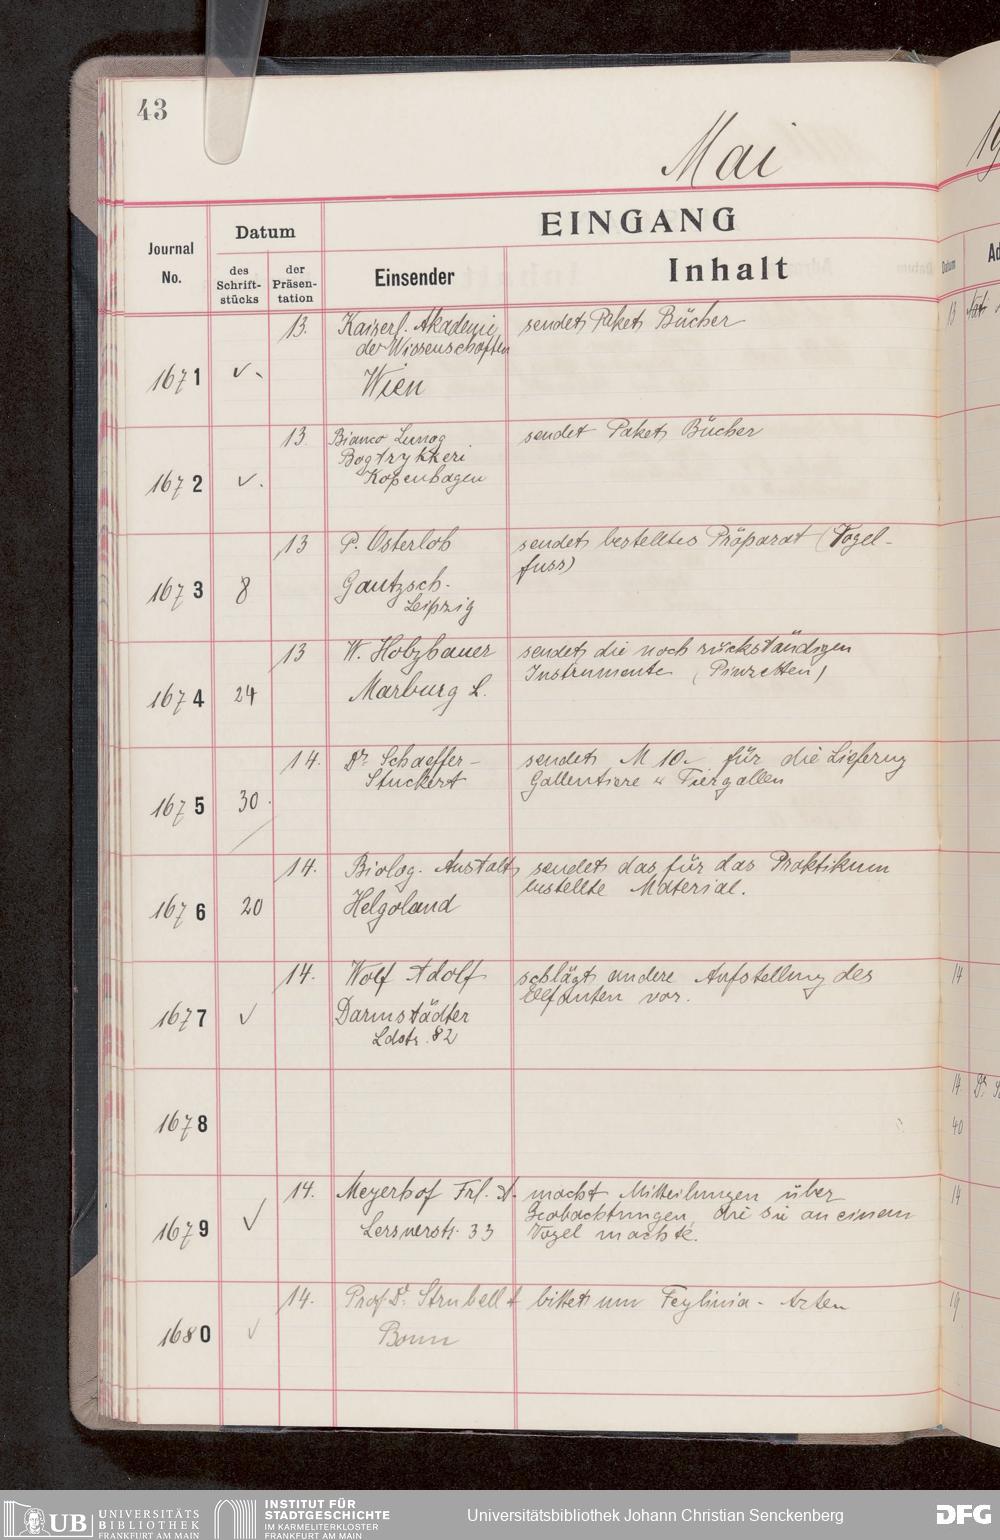 43
Mai
EINGANG
Journal No.
Datum
des Schrift-stücks
der Präsen-tation
Einsender
Inhalt
Datum
1671
✓.
13.
Kaiserl. Akademie
der Wissenschaften
Wien
sendet Paket Bücher
13
1672
✓.
13.
Bianco Lunog
Bogtrykkeri
Kopenhagen
sendet Paket Bücher
1673
8
13
P. Osterloh
Gautzsch-
Leipzig
sendet bestelltes Präparat (Vogel-
fuss)
1674
24
13
W. Holzhauer
Marburg L.
sendet die noch rückständigen
Instrumente (Pinzetten)
1675
30.
14.
Dr. Schaeffer-
Stuckert
sendet M 10.- für die Lieferung
Gallentiere u Tiergallen
1676
20
14.
Biolog. Anstalt
Helgoland
sendet das für das Praktikum
bestellte Material.
1677
✓
14.
Wolf Adolf
Darmstädter
Ldstr. 82
schlägt andere Aufstellung des
Elefanten vor.
14
1678
14
40
1679
✓
14.
Meyerhof Frl. A.
Lersnerstr. 33
macht Mitteilungen über
Beobachtungen, die sie an einem
Vogel machte.
14
1680
✓
14.
Prof Dr. Strubell
Bonn
bittet um Feylinia-Arten
19
UB UNIVERSITÄTS
BIBLIOTHEK
FRANKFURT AM MAIN
INSTITUT FÜR
STADTGESCHICHTE
IM KARMELITERKLOSTER
FRANKFURT AM MAIN
Universitätsbibliothek Johann Christian Senckenberg
DFG